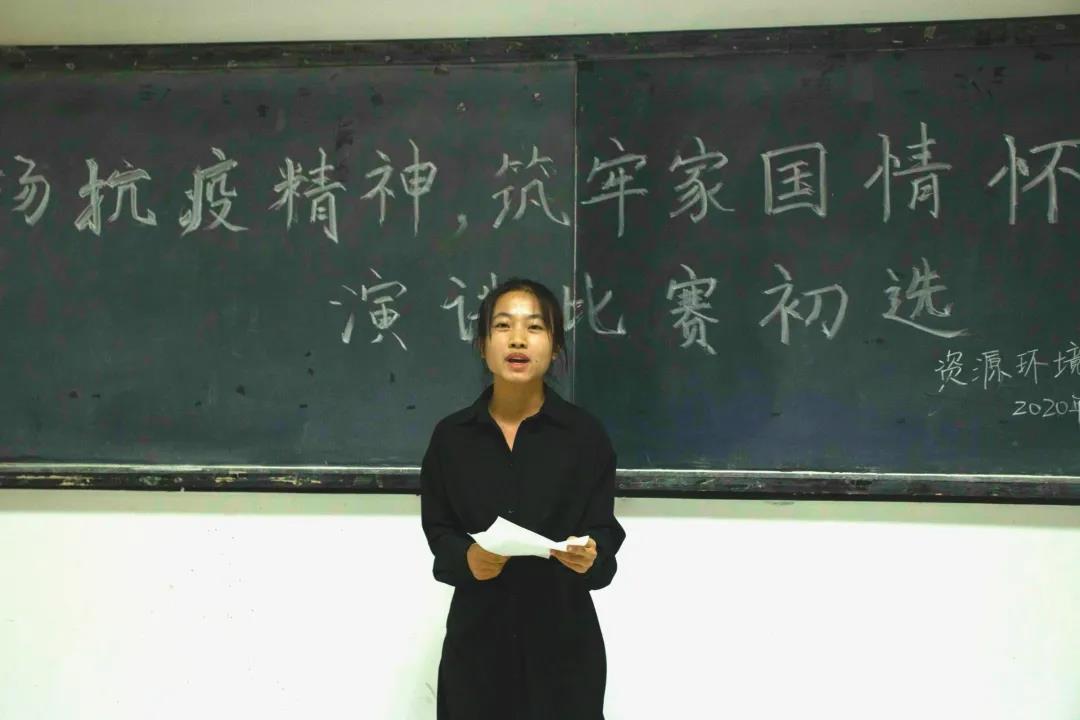 扬抗疫精神,筑牢家国情怀
演讲比赛初选
资源环境
2020年